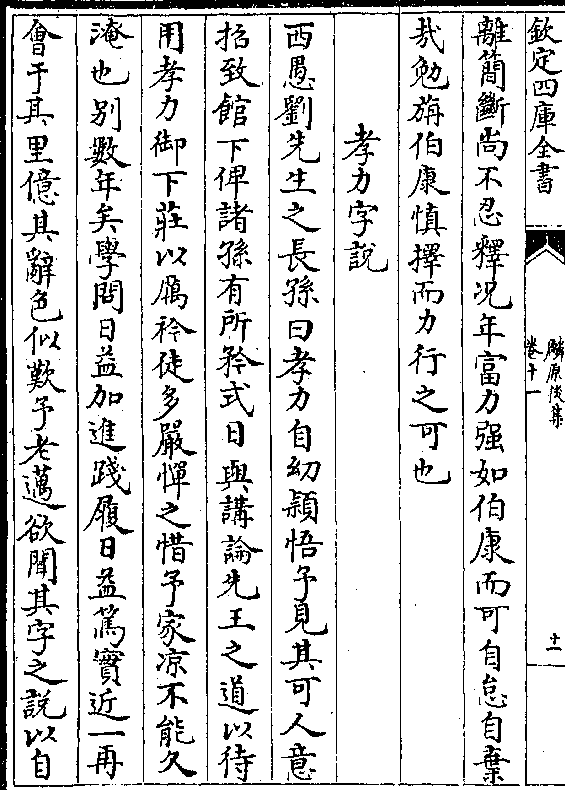 欽定四庫全書
麟原後集
卷十一
十一
離簡斷尚不忍釋况年富力强如伯康而可自怠自棄
㢤勉旃伯康慎擇而力行之可也
孝力字説
西愚劉先生之長孫曰孝力自幼頴悟予見其可人意
招致館下俾諸孫有所矜式日與講論先王之道以待
用孝力御下莊以厲衿徒多嚴憚之惜予家凉不能久
淹也别數年矣學問日益加進踐履日益篤實近一再
會于其里億其辭色似歎予老邁欲聞其字之説以自